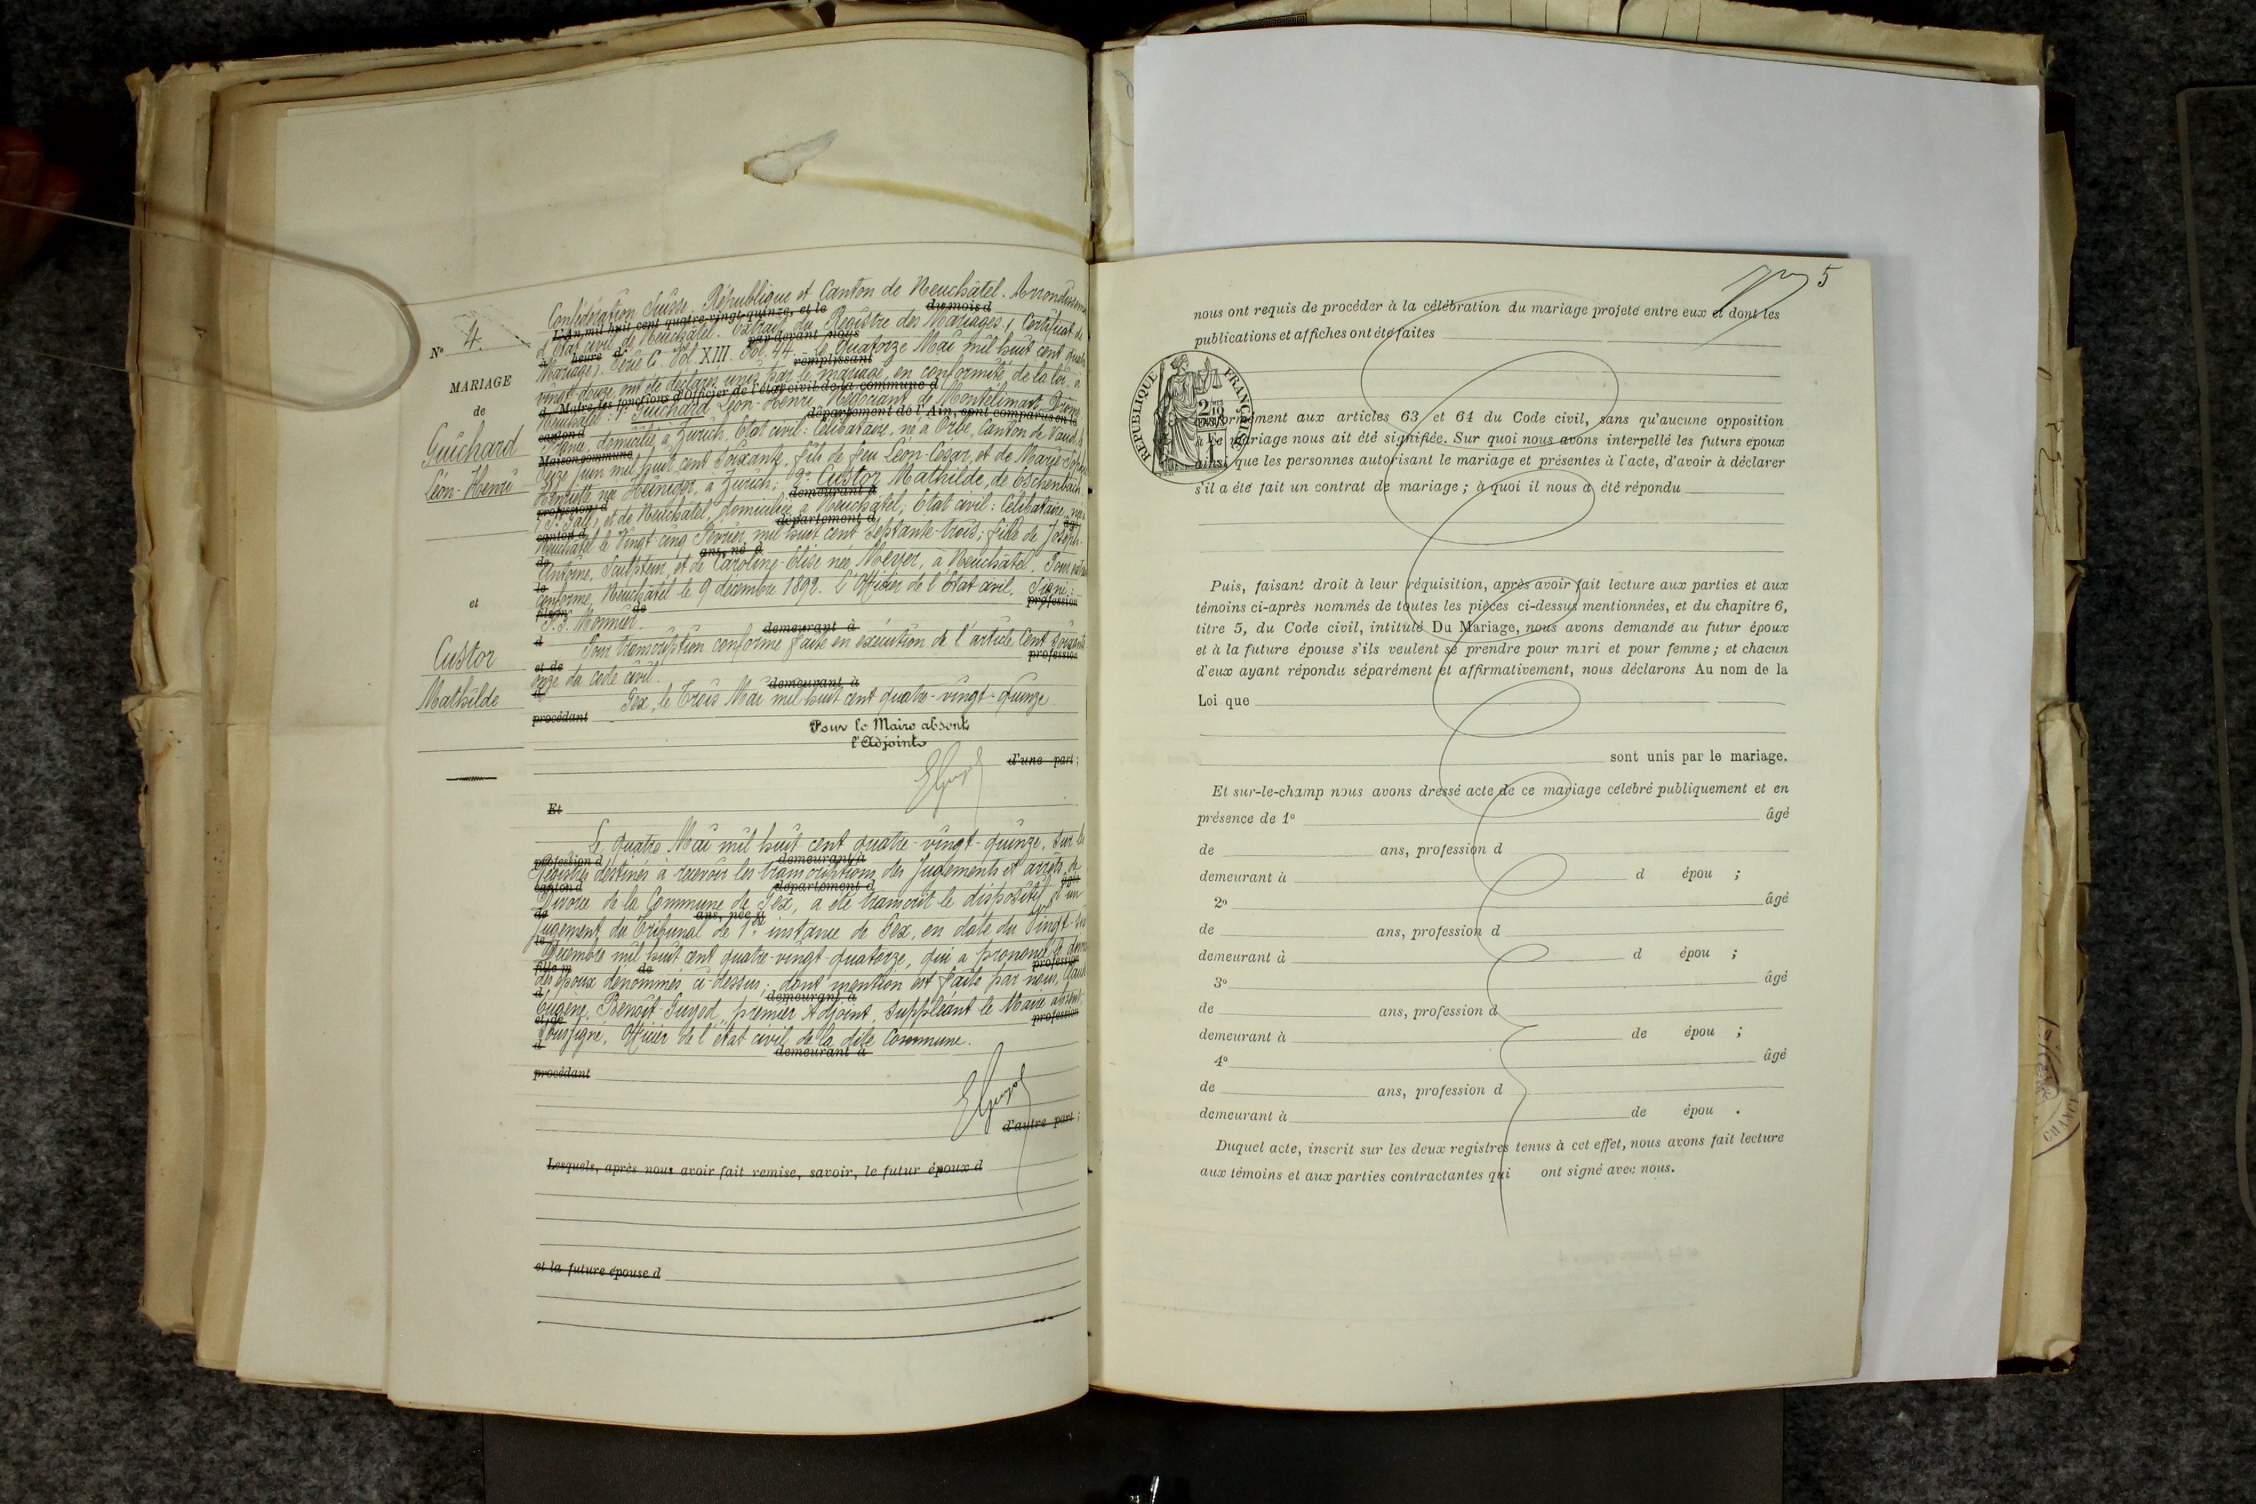 N° 4.
MARIAGE
de
Guichard
Léon-Henri
et
Custor
Mathilde
Confédération Suisse. République et Canton de Neuchâtel. Arrondissem
L'An mil huit cent quatre-vingt-quinze, et le du mois d
d'Etat civil de Neuchâtel. Extrait du Registre des Mariages. (Certificat de
heure d par devant nous
Mariage). Série C. Vol XIII. Fol. 44. Le Quatorze Mai mil huit cent quatre
remplissant
vingt-douze, ont été déclarés unis par le mariage, en conformité de la loi, à
d , Maire, les fonctions d'Officier de l'état civil de la commune d
Neuchâtel: 1° Guichard Léon-Henri, Négociant, de Montélimart, Drôme
canton d département de l'Ain, sont comparus en la
domicilié à Zurich, Etat civil: Célibataire, né à Orbe, Canton de Vaud, le
Maison commune
Juin mil huit cent soixante, fils de feu Léon-César, et de Marie-Sophie
Henriette née Heiniger, à Zurich; 2° Custor Mathilde, de Eschenbach
profession d demeurant à
(St Gall) et de Neuchâtel, domiciliée à Neuchâtel, Etat civil: Célibataire, née à
canton d département d
Neuchâtel le Vingt cinq Février mil huit cent septante-trois; fille de Joseph-
de ans, né à
Antoine, Sculpteur, et de Caroline-Elise née Meyer, à Neuchâtel. Pour extrait
le
conforme, Neuchâtel le 9 décembre 1892. L'Officier de l'Etat civil. Signé:
fils m de profession
Monnier.
d demeurant à
Pour transcription conforme faite en exécution de l'article Cent soixante
et de profession
onze du code civil.
d demeurant à
Gex, le Trois Mai mil huit cent quatre-vingt-quinze
procédant
Pour le Maire absent
l'Adjoint
d'une part;
Et
Le Quatre Mai mil huit cent quatre-vingt-quinze, sur les
profession d demeurant à
Registres destinés à recevoir les transcriptions des Jugements et arrêts de
canton d département d
Divorce de la Commune de Gex, a été transcrit le dispositif d'un
de ans, née à
Jugement du Tribunal de 1re instance de Gex, en date du Vingt-
le
Décembre mil huit cent quatre-vingt-quatorze, qui a prononcé le divorce
fille m de profession
des époux dénommés ci-dessus; dont mention est faite par nous,
d demeurant à
Eugène, Benoît-Guyod, premier Adjoint, suppléant le Maire absent,
et de profession
soussigné, Officier de l'état civil de la dite Commune.
d demeurant à
procédant
d'autre part;
Lesquels, après nous avoir fait remise, savoir, le futur époux d
et la future épouse d
5
nous ont requis de procéder à la célébration du mariage projeté entre eux et dont les
publications et affiches ont été faites
RÉPUBLIQUE FRANÇAISE
Conformément aux articles 63 et 64 du Code civil, sans qu'aucune opposition
à ce mariage nous ait été signifiée. Sur quoi nous avons interpellé les futurs époux
ainsi que les personnes autorisant le mariage et présentes à l'acte, d'avoir à déclarer
s'il a été fait un contrat de mariage; à quoi il nous a été répondu
Puis, faisant droit à leur réquisition, après avoir fait lecture aux parties et aux
témoins ci-après nommés de toutes les pièces ci-dessus mentionnées, et du chapitre 6,
titre 5, du Code civil, intitulé Du Mariage, nous avons demandé au futur époux
et à la future épouse s'ils veulent se prendre pour mari et pour femme; et chacun
d'eux ayant répondu séparément et affirmativement, nous déclarons Au nom de la
Loi que
sont unis par le mariage.
Et sur-le-champ nous avons dressé acte de ce mariage célébré publiquement et en
présence de 1° âgé
de ans, profession d
demeurant à d épou ;
2° âgé
de ans, profession d
demeurant à d épou ;
3° âgé
de ans, profession d
demeurant à de épou ;
4° âgé
de ans, profession d
demeurant à de épou .
Duquel acte, inscrit sur les deux registres tenus à cet effet, nous avons fait lecture
aux témoins et aux parties contractantes qui ont signé avec nous.